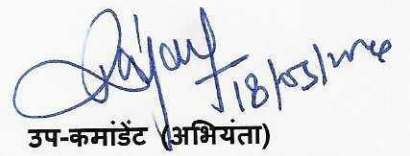 18/03/2024
उप-कमांडेंट (अभियंता)